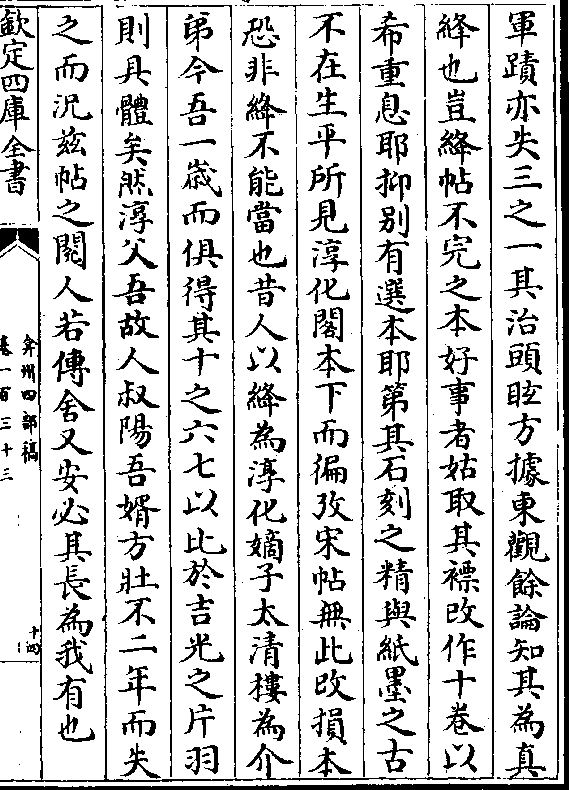 軍蹟亦失三之一其治頭眩方據東觀餘論知其為真
絳也豈絳帖不完之本好事者姑取其褾改作十卷以
希重息耶抑別有選本耶第其石刻之精與紙墨之古
不在生平所見淳化閣本下而徧攷宋帖無此改損本
恐非絳不能當也昔人以絳為淳化嫡子太清樓為介
弟今吾一歲而俱得其十之六七以比於吉光之片羽
則具體矣然淳父吾故人叔陽吾婿方壯不二年而失
之而況茲帖之閱人若傳舍又安必其長為我有也
欽定四庫全書
弇州四部稿
卷一百三十三
十四